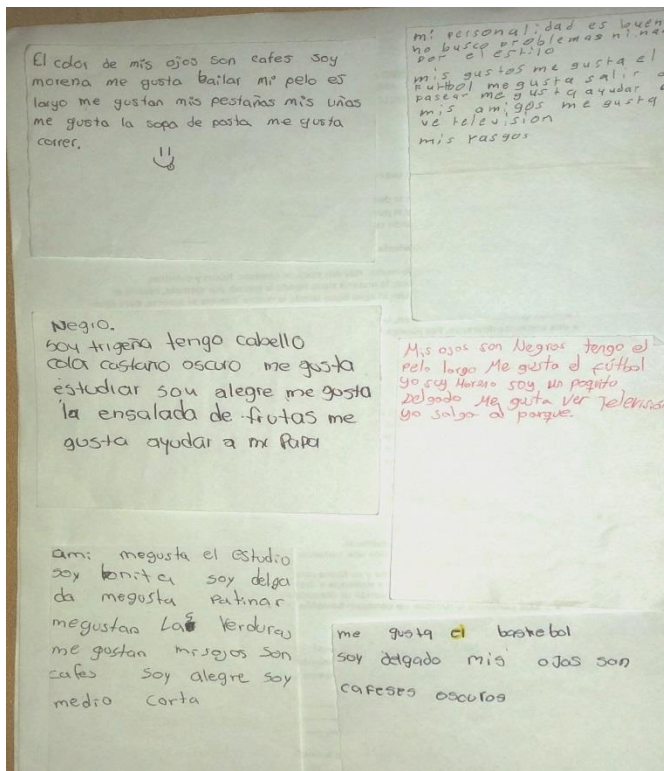 El color de mis ojos son cafes soy
morena me gusta bailar mi pelo es
largo me gustan mis pestañas mis uñas
me gusta la sopa de pasta me gusta
correr.
mi personalidad es buen
no busco problemas ni na
por el estilo
mis gustos me gusta el
futbol me gusta salir a
pasear me gusta ayudar a
mis amigos me gusta
ve television
mis rasgos
Negro.
soy trigeña tengo cabello
cola castano oscuro me gusta
estudiar soy alegre me gosta
la ensalada de frutas me
gusta ayudar a mi Papa
Mis ojos son Negros Tengo el
pelo largo Me gusta el fútbol
yo soy Moreno soy un poqito
Delgado Me guta ver Television
yo salgo al parque.
ami megusta el estudio
soy bonita soy delga
da megusta Patinar
megustan Las Verduras
me gustan misojos son
cafes soy alegre soy
medio corta
me gusta el baskebol
soy delgado mis ojos son
cafeses oscuros